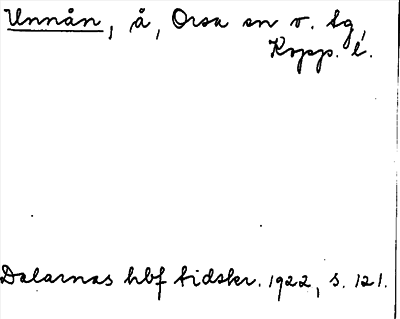 Unnån, å, Orsa sn o. tg,
Kopp. l.
Dalarnas hbf tidskr. 1922, s. 121.